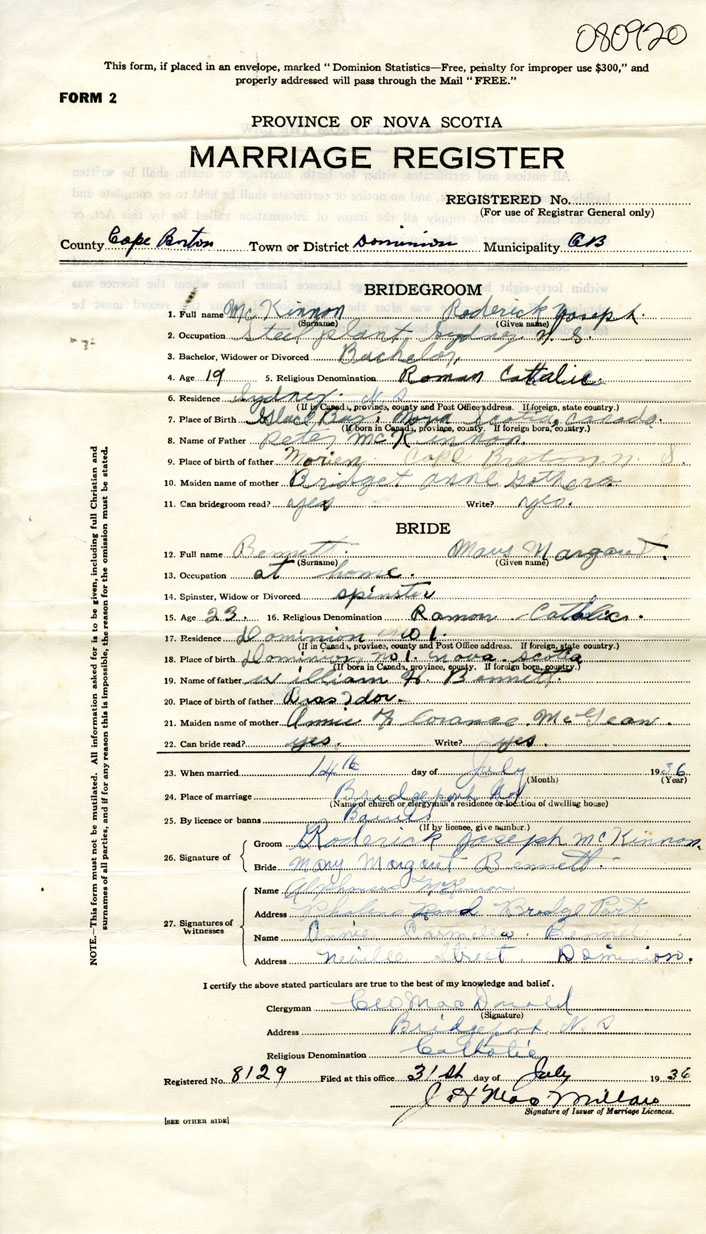 080920
This form, if placed in an envelope, marked "Dominion Statistics—Free, penalty for improper use $300," and
properly addressed will pass through the Mail "FREE."
FORM 2
PROVINCE OF NOVA SCOTIA
MARRIAGE REGISTER
REGISTERED No.
(For use of Registrar General only)
County Cape Breton Town or District Dominion Municipality CB
BRIDEGROOM
1. Full name McKinnon Roderick Joseph
(Surname) (Given name)
2. Occupation Steel plant Sydney N. S.
3. Bachelor, Widower or Divorced Bachelor
4. Age 19 5. Religious Denomination Roman Cattalic
6. Residence Sydney N S
(If in Canada, province, county and Post Office address. If foreign, state country.)
7. Place of Birth Glace Bay, Nova Scotia, Canada.
(If born in Canada, province, county. If foreign born, country.)
8. Name of Father Peter McKinnon
9. Place of birth of father Morien Cape Breton N. S.
10. Maiden name of mother Bridget
11. Can bridegroom read? yes Write? yes.
BRIDE
12. Full name Bennett Mary Margaret.
(Surname) (Given name)
13. Occupation at home.
14. Spinster, Widow or Divorced spinster
15. Age 23. 16. Religious Denomination Roman Catholic.
17. Residence Dominion No 1.
(If in Canada, province, county and Post Office address. If foreign, state country.)
18. Place of birth Dominion No 1. Nova Scotia
(If born in Canada, province, county. If foreign born, country.)
19. Name of father William H Bennett
20. Place of birth of father Bras dor.
21. Maiden name of mother Annie
22. Can bride read? yes. Write? yes.
23. When married 14th day of July 1936
(Month) (Year)
24. Place of marriage Bridgeport
(Name of church or clergyman's residence or location of dwelling house)
25. By licence or banns Banns
(If by licence, give number.)
26. Signature of
Groom Roderick Joseph McKinnon
Bride Mary Margaret Bennett
27. Signatures of Witnesses
Name
Address Road Bridge Port
Name Annie Bennett
Address Neville Street Dominion.
I certify the above stated particulars are true to the best of my knowledge and belief.
Clergyman Geo MacDonald
(Signature)
Address Bridgeport, N. S
Religious Denomination Catholic
Registered No. 8129 Filed at this office 31st day of July 1936
J. H MacMillan
Signature of Issuer of Marriage Licences.
[SEE OTHER SIDE]
NOTE.—This form must not be mutilated. All information asked for is to be given, including full Christian and
surnames of all parties, and if for any reason this is impossible, the reason for the omission must be stated.